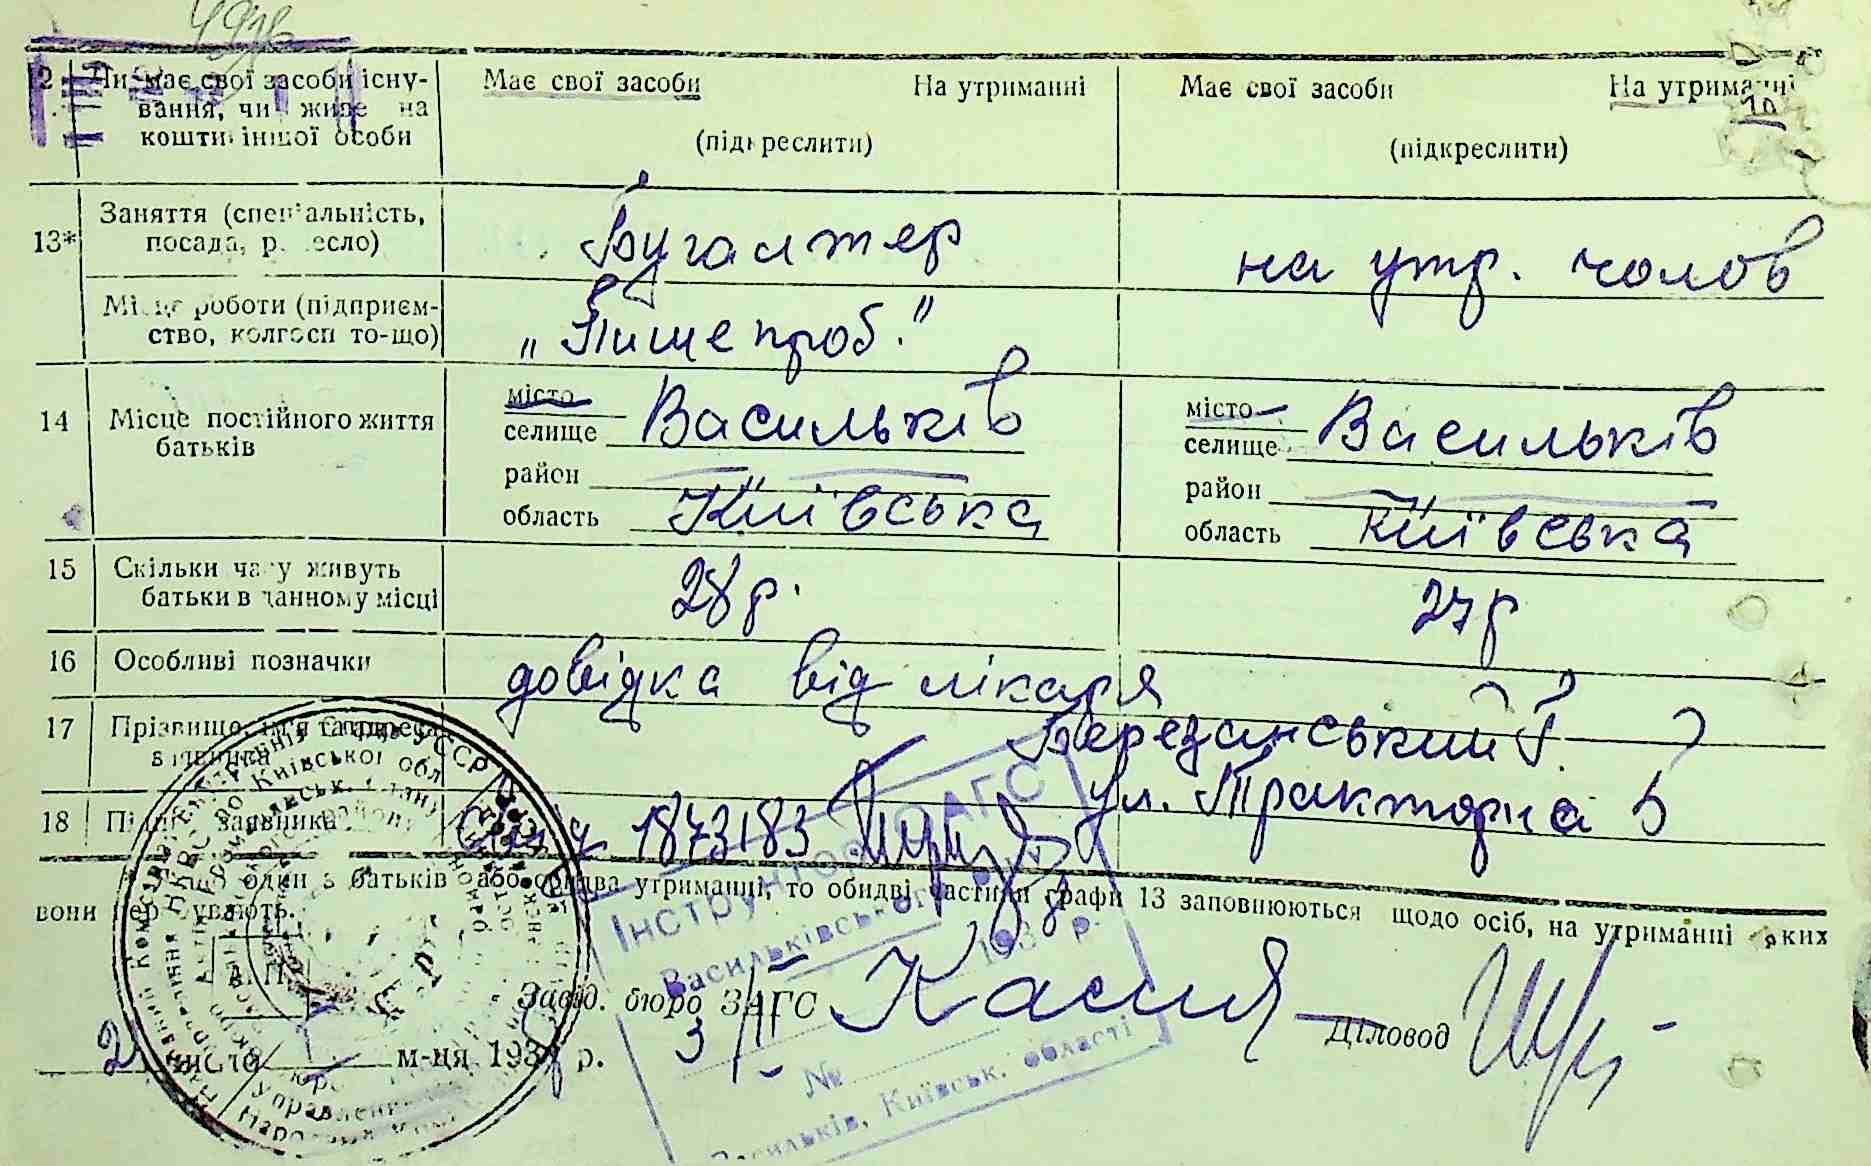 12 Чи має свої засоби існу-
вання, чи живе на
кошти іншої особи
Має свої засоби На утриманні
(підкреслити)
Має свої засоби На утриманні
(підкреслити)
13* Заняття (спеціальність,
посада, ремесло)
Бугалтер
на утр. чолов
Місце роботи (підприєм-
ство, колгосп то-що)
„Пищепроб."
14 Місце постійного життя
батьків
місто
селище Васильків
район
область Київська
місто
селище Васильків
район
область Київська
15 Скільки часу живуть
батьки в данному місці
28 р.
27 р
16 Особливі позначки
довідка від лікаря
17 Прізвище, ім'я та адреса
заявника
Березанський Г.
ул. Тракторна 5
18 Підпис заявника
187383
один з батьків або обидва утриманні, то обидві частини графи 13 заповнюються щодо осіб, на утриманні яких
вони перебувають.
Інструктор ЗАГС
Васильківського
193 р.
№
Васильків, Київськ. області
Завід. бюро ЗАГС
Діловод
2 число м-ця 193 р.